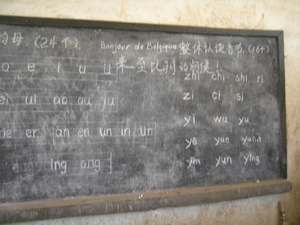 韵母 (24个) Bonjour de Belgique 整体认读音节 (16个)
来至比利时的问候!
o e i u ü
zhi chi shi ri
ei ui ao ou iu
zi ci si
er an en un in ün
yi wu yu
ye yue yuan
ing ong
yin yun ying